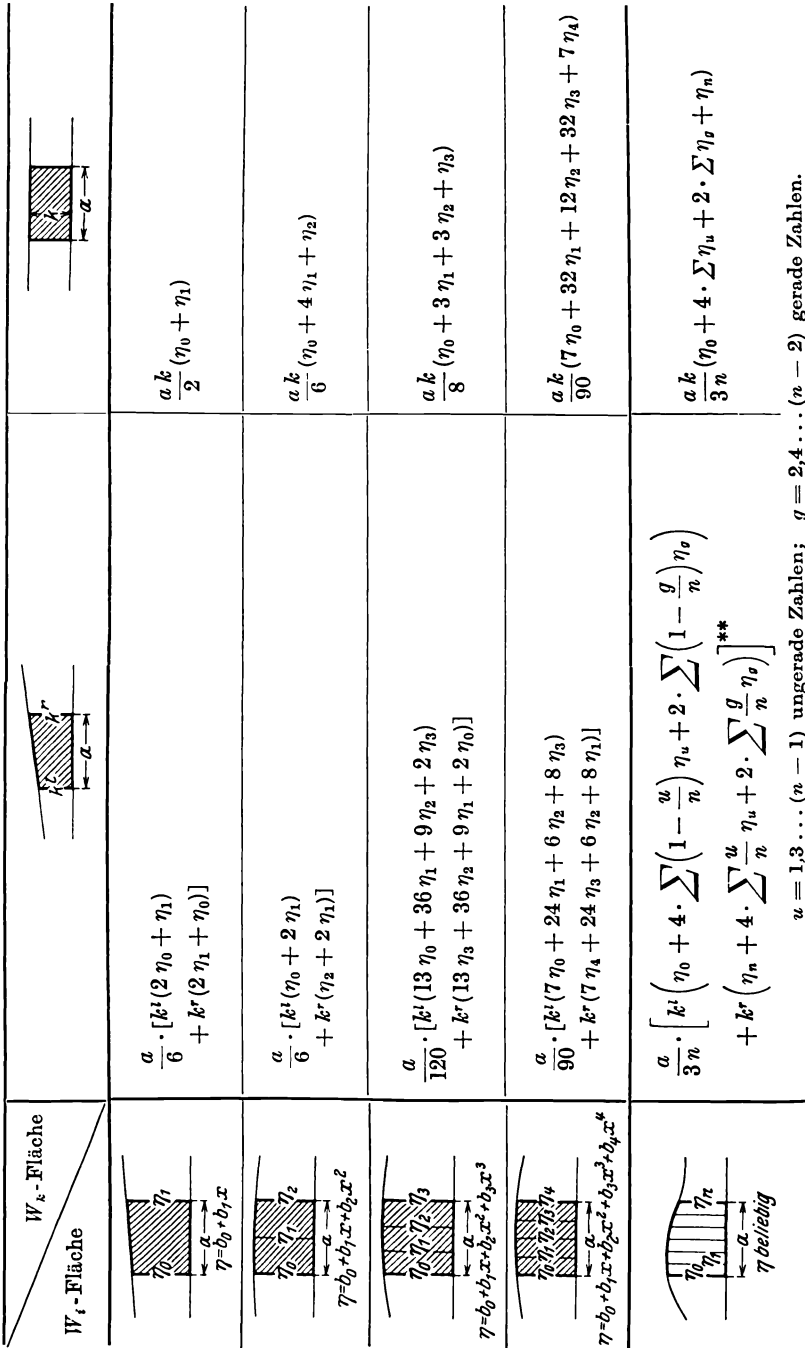 W_k-Fläche
W_i-Fläche
k^l k^r
a
k
a
η_0 η_1
a
η=b_0+b_1x
a/6 · [k^l(2η_0 + η_1)
+ k^r(2η_1 + η_0)]
ak/2 (η_0 + η_1)
η_0 η_1 η_2
a
η=b_0+b_1x+b_2x^2
a/6 · [k^l(η_0 + 2η_1)
+ k^r(η_2 + 2η_1)]
ak/6 (η_0 + 4η_1 + η_2)
η_0 η_1 η_2 η_3
a
η=b_0+b_1x+b_2x^2+b_3x^3
a/120 · [k^l(13η_0 + 36η_1 + 9η_2 + 2η_3)
+ k^r(13η_3 + 36η_2 + 9η_1 + 2η_0)]
ak/8 (η_0 + 3η_1 + 3η_2 + η_3)
η_0 η_1 η_2 η_3 η_4
a
η=b_0+b_1x+b_2x^2+b_3x^3+b_4x^4
a/90 · [k^l(7η_0 + 24η_1 + 6η_2 + 8η_3)
+ k^r(7η_4 + 24η_3 + 6η_2 + 8η_1)]
ak/90 (7η_0 + 32η_1 + 12η_2 + 32η_3 + 7η_4)
η_0 η_1 η_n
a
η beliebig
a/3n · [k^l (η_0 + 4 · ∑(1 − u/n) η_u + 2 · ∑(1 − g/n) η_g)
+ k^r (η_n + 4 · ∑ u/n η_u + 2 · ∑ g/n η_g)]**
ak/3n (η_0 + 4 · Σ η_u + 2 · Σ η_g + η_n)
u = 1,3 ... (n − 1) ungerade Zahlen; g = 2,4 ... (n − 2) gerade Zahlen.